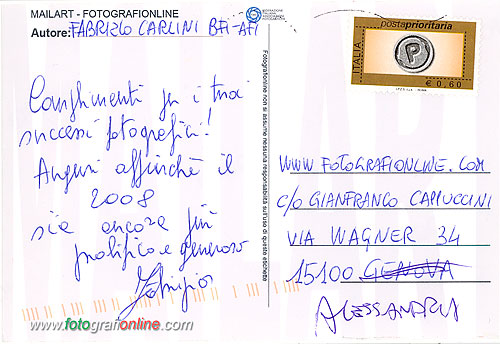 MAILART - FOTOGRAFIONLINE
Autore: FABRIZIO CARLINI BFI-AFI
Complimenti per i tuoi
successi fotografici!
Auguri affinchè il
2008
sia ancora più
prolifico e generoso
Fabrizio
www.fotografionline.com
Fotografionline non si assume nessuna responsabilità sull'uso di questa etichetta
postaprioritaria
ITALIA
P
€ 0,60
WWW.FOTOGRAFIONLINE.COM
C/O GIANFRANCO CAPPUCCINI
VIA WAGNER 34
15100 GENOVA
ALESSANDRIA